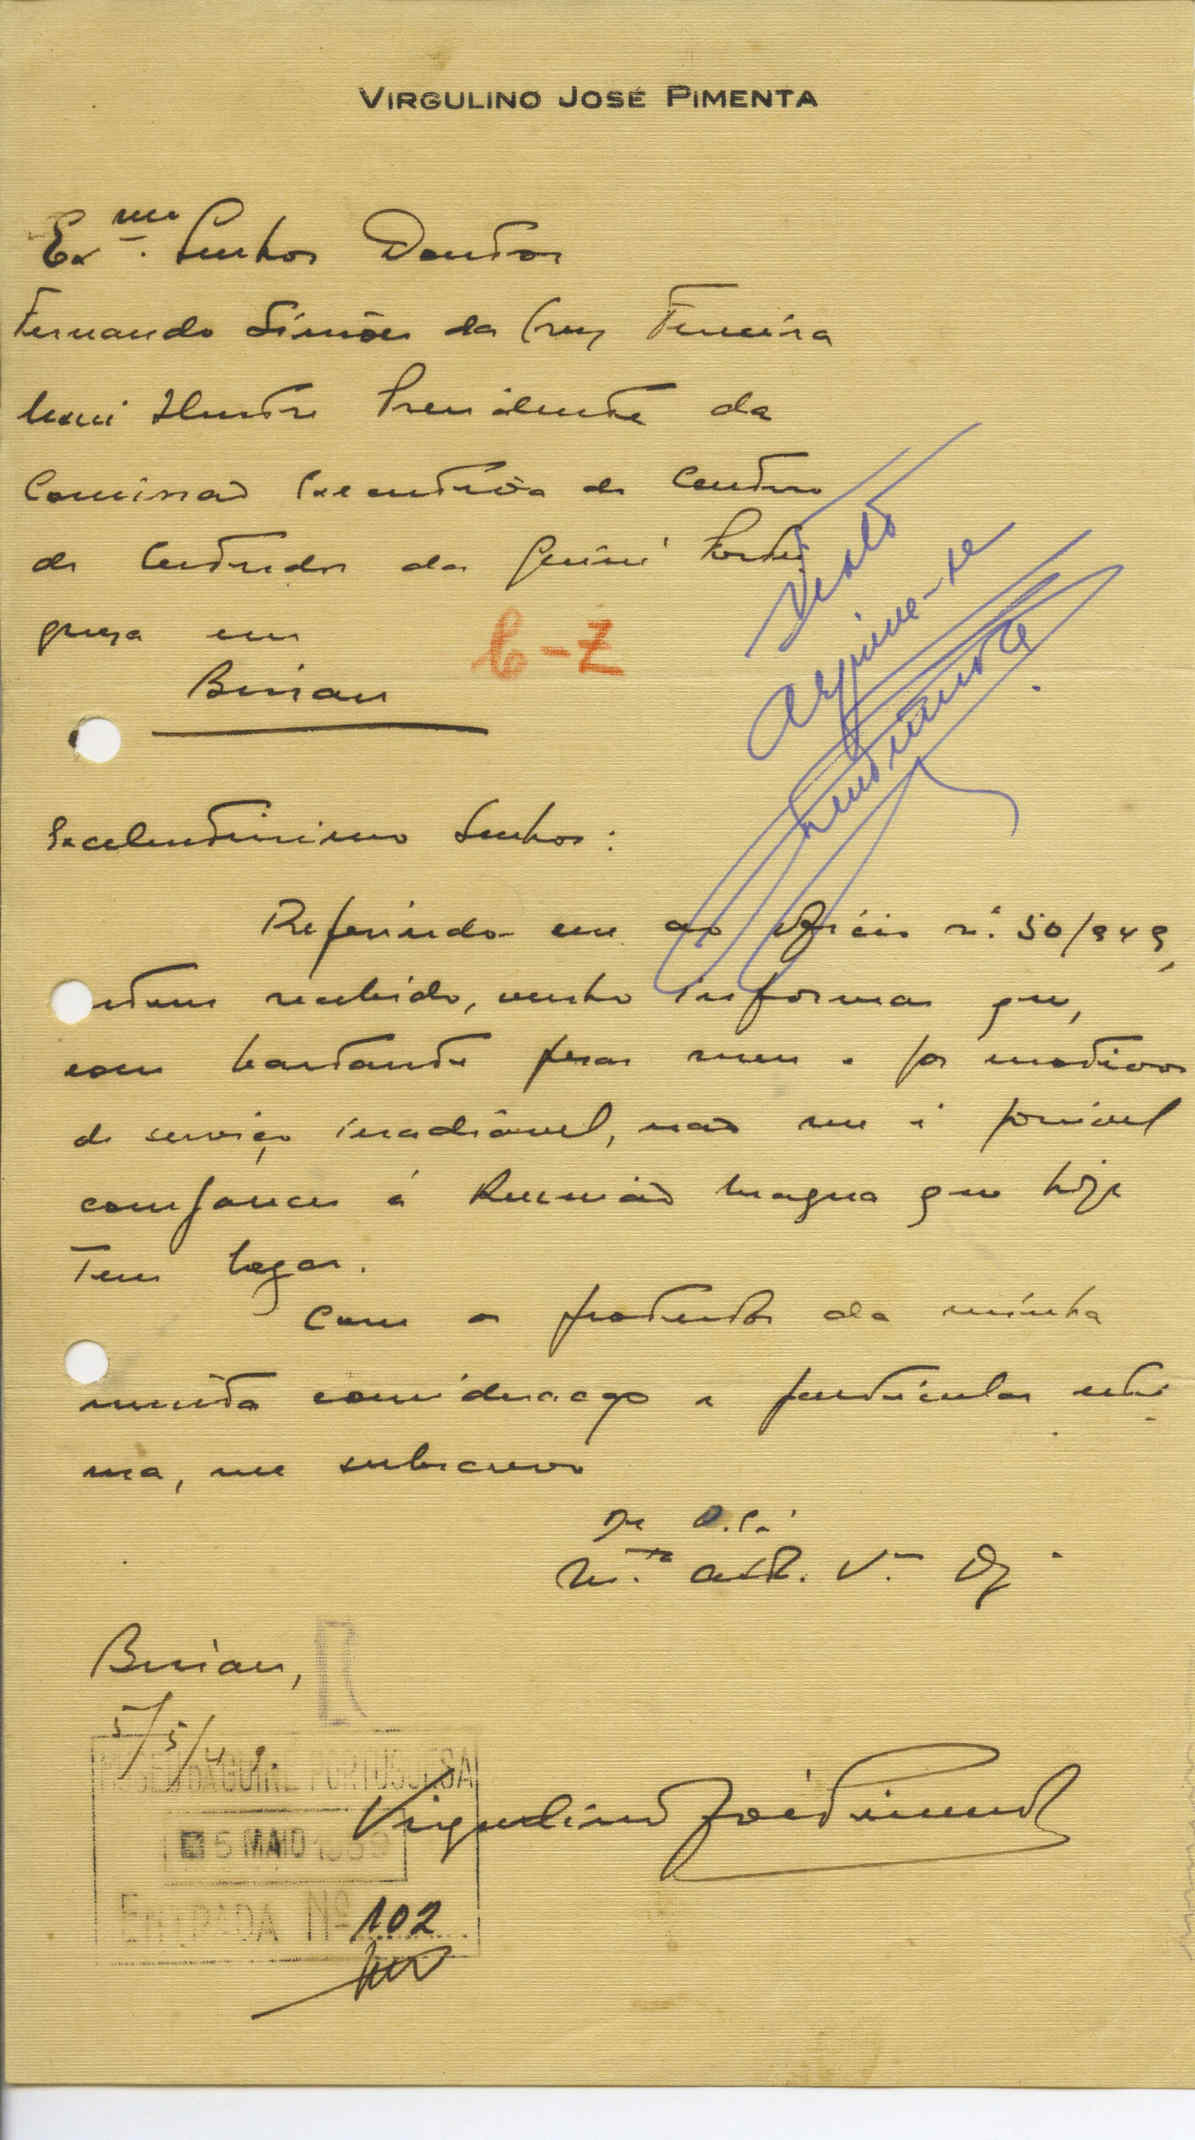 VIRGULINO JOSÉ PIMENTA
Ex.mo Senhor Doutor
Fernando Simões da Cruz Ferreira
Mui Ilustre Presidente da
Comissão Executiva do Centro
de Estudos da Guiné Portu
guesa em
Bissau
C-Z
Visto
Arquive-se
Excelentissimo Senhor:
Referindo-me ao oficio n.º 50/949,
ontem recebido, venho informar que,
com bastante pesar meu e por motivos
de serviço inadiável, não me é possivel
comparecer á Reunião magna que hoje
tem logar.
Com os protestos da minha
muita consideração e particular esti
ma, me subscrevo
De V. Ex.ª
M.to At.º V.or Obg.
Bissau,
5/5/49
MUSEU DA GUINÉ PORTUGUESA
5 MAIO 19
ENTRADA Nº 102
Virgulino José Pimenta